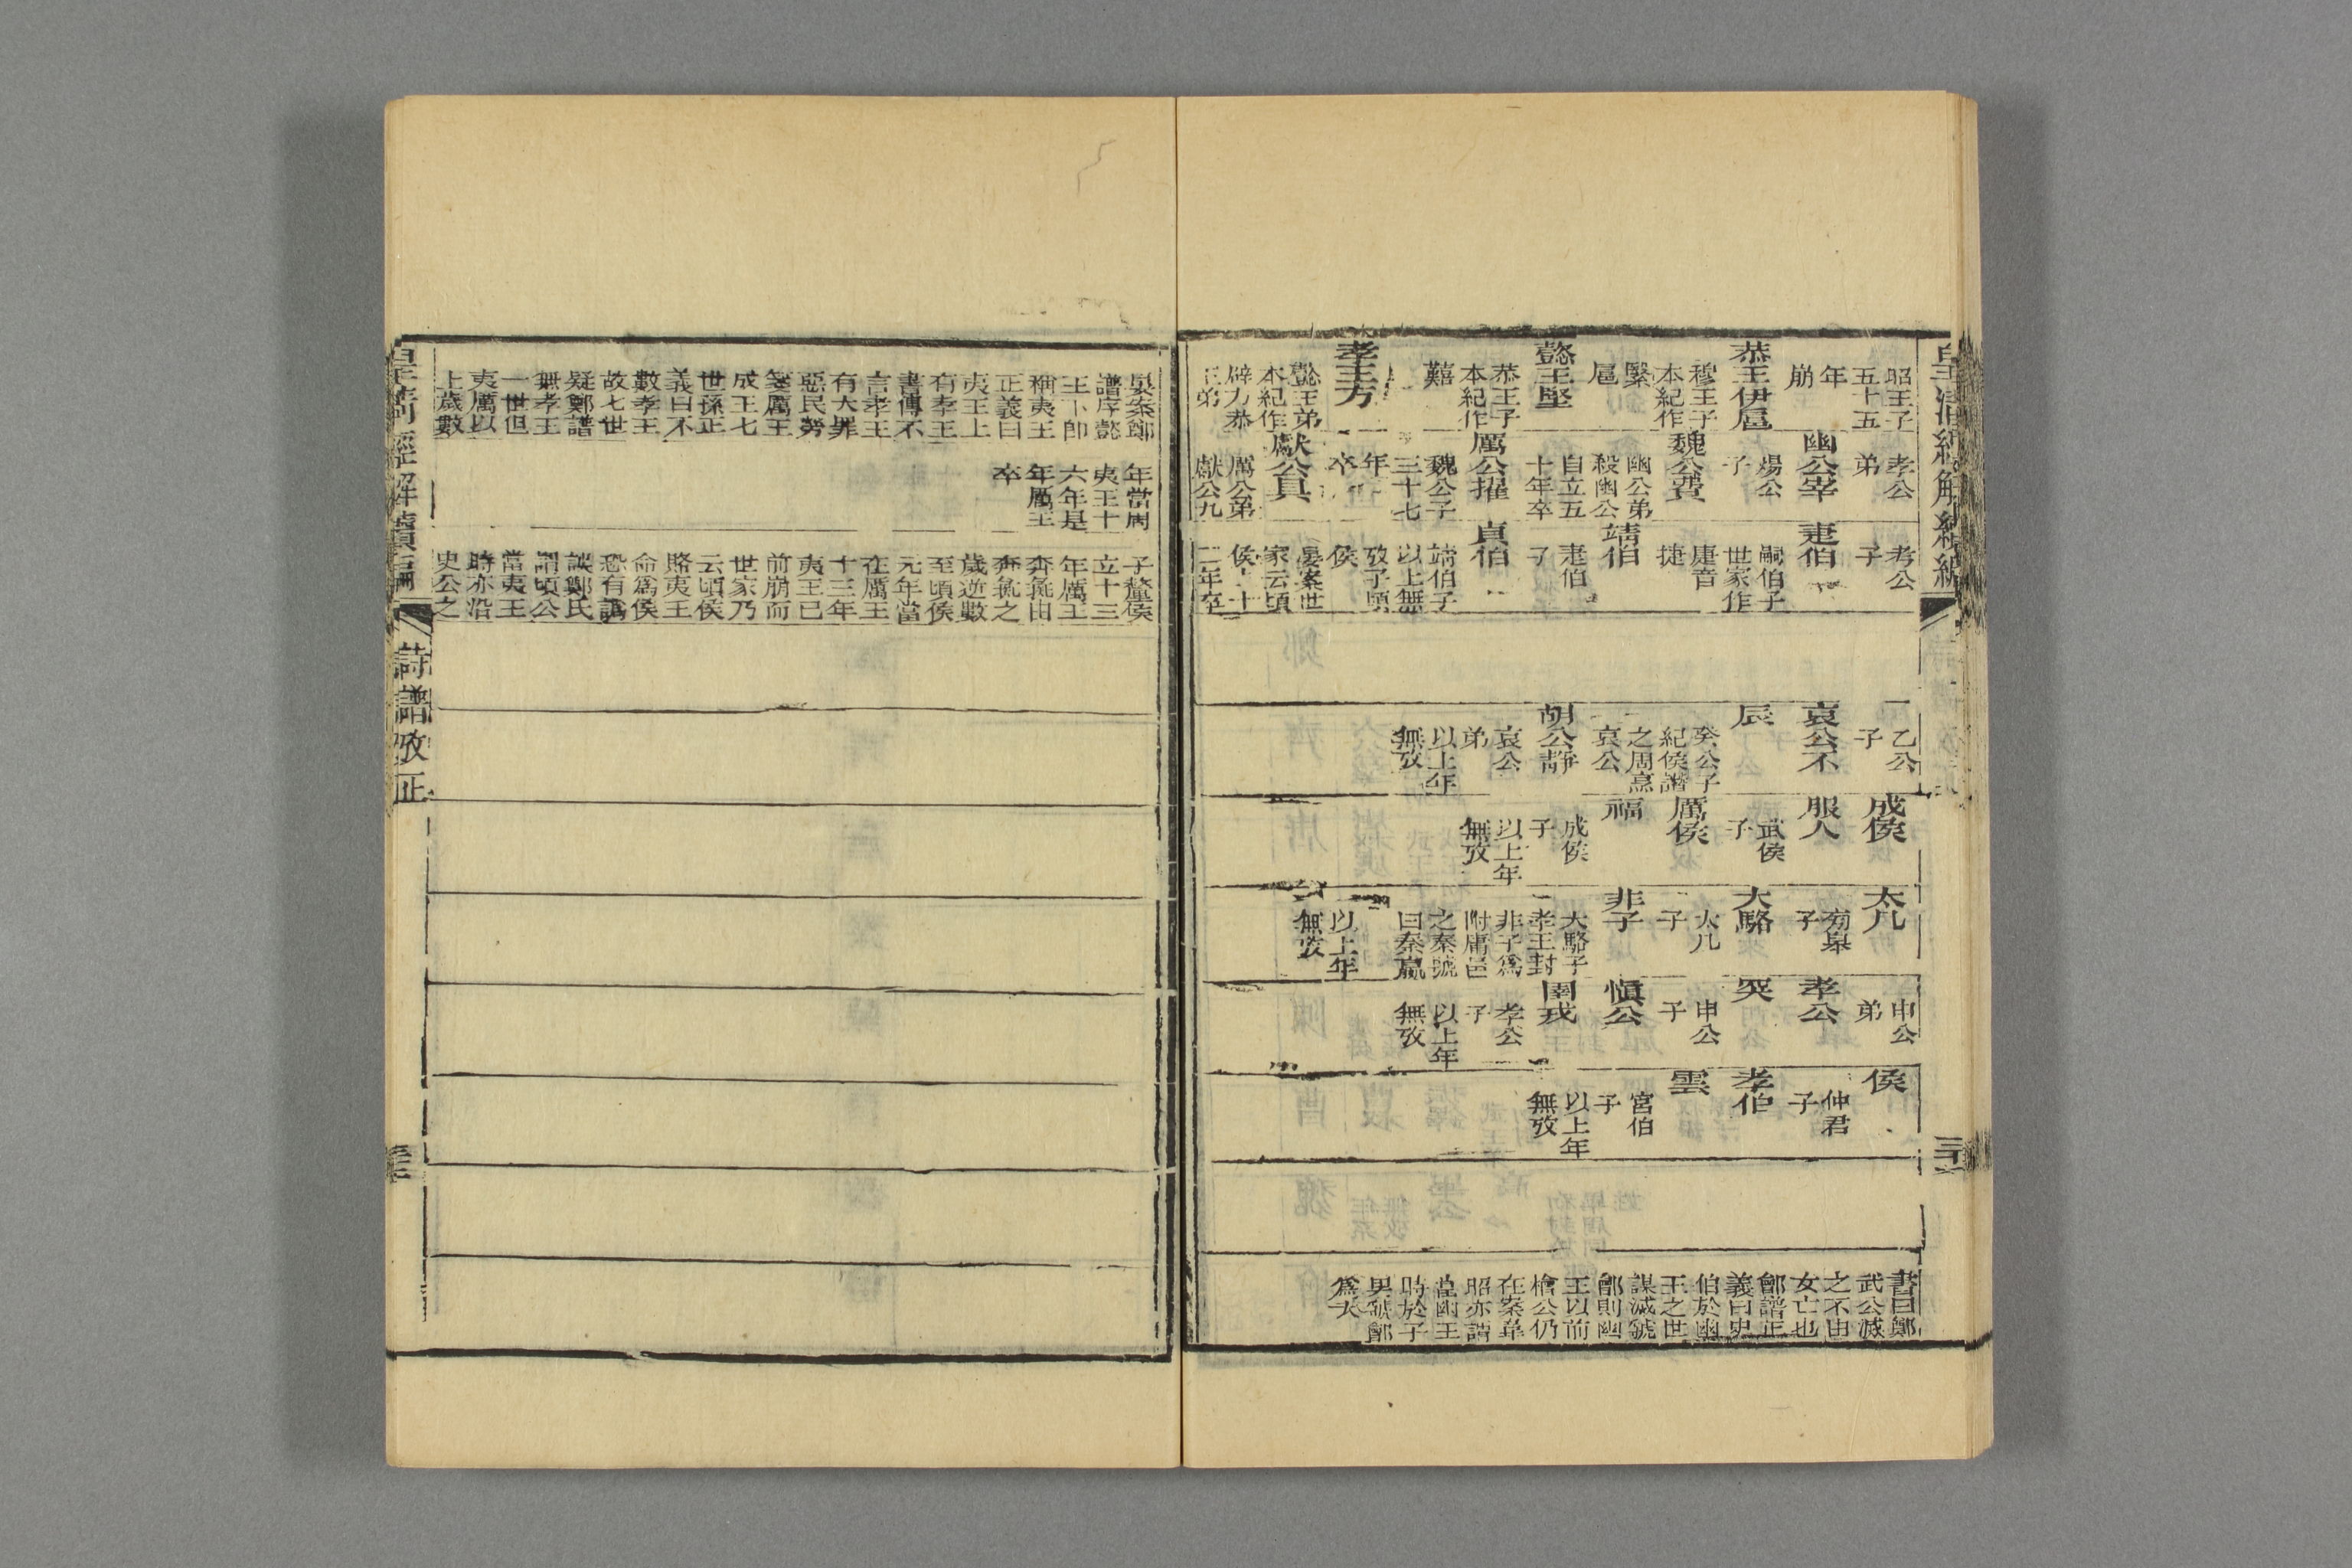 昭王子
五十五
年
崩
恭王伊扈
穆王子
本紀作
緊
扈
懿王堅
恭王子
本紀作
囏
孝王方
懿王弟
本紀作
辟方恭
王弟
孝公
弟
幽公宰
煬公
子
魏公費
幽公弟
殺幽公
自立五
十年卒
厲公擢
魏公子
三十七
年
卒
獻公具
厲公弟
獻公九
考公
子
疌伯
嗣伯子
世家作
庚音
捷
靖伯
疌伯
子
貞伯
靖伯子
以上無
攷子頃
侯
晏案世
家云頃
侯十
二年卒
乙公
子
哀公不
辰
癸公子
紀侯譖
之周烹
哀公
胡公靜
哀公
弟
以上年
無攷
成侯
服人
武侯
子
厲侯
福
成侯
子
以上年
無攷
太几
旁皋
子
大駱
太几
子
非子
大駱子
孝王封
非子爲
附庸邑
之秦號
曰秦嬴
以上年
無攷
申公
弟
孝公
突
申公
子
愼公
圉戎
孝公
子
以上年
無攷
侯
仲君
子
孝伯
雲
宮伯
子
以上年
無攷
書曰鄭
武公滅
之不由
女亡也
鄶譜正
義曰史
伯於幽
王之世
謀滅虢
鄶則幽
王以前
檜公仍
在案韋
昭亦謂
當幽王
時於子
男虢鄶
爲大
晏案鄭
譜序懿
王下卽
稱夷王
正義曰
夷王上
有孝王
書傳不
言孝王
有大罪
惡民勞
箋厲王
成王七
世孫正
義曰不
數孝王
故七世
疑鄭譜
無孝王
一世但
夷厲以
上歲數
年當周
夷王十
六年是
年厲王
卒
子釐侯
立十三
年厲王
奔彘由
奔彘之
歲逆數
至頃侯
元年當
在厲王
十三年
夷王已
前崩而
世家乃
云頃侯
賂夷王
命爲侯
恐有譌
誤鄭氏
謂頃公
當夷王
時亦沿
史公之
皇清經解續編
詩譜攷正